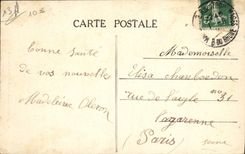 10c
CARTE POSTALE
Mademoiselle
Bonne Santé
de vos nouvelles
Elisa Chambordon
Madeleine
rue de l'aigle n° 31
Lagarenne
(Paris) Seine